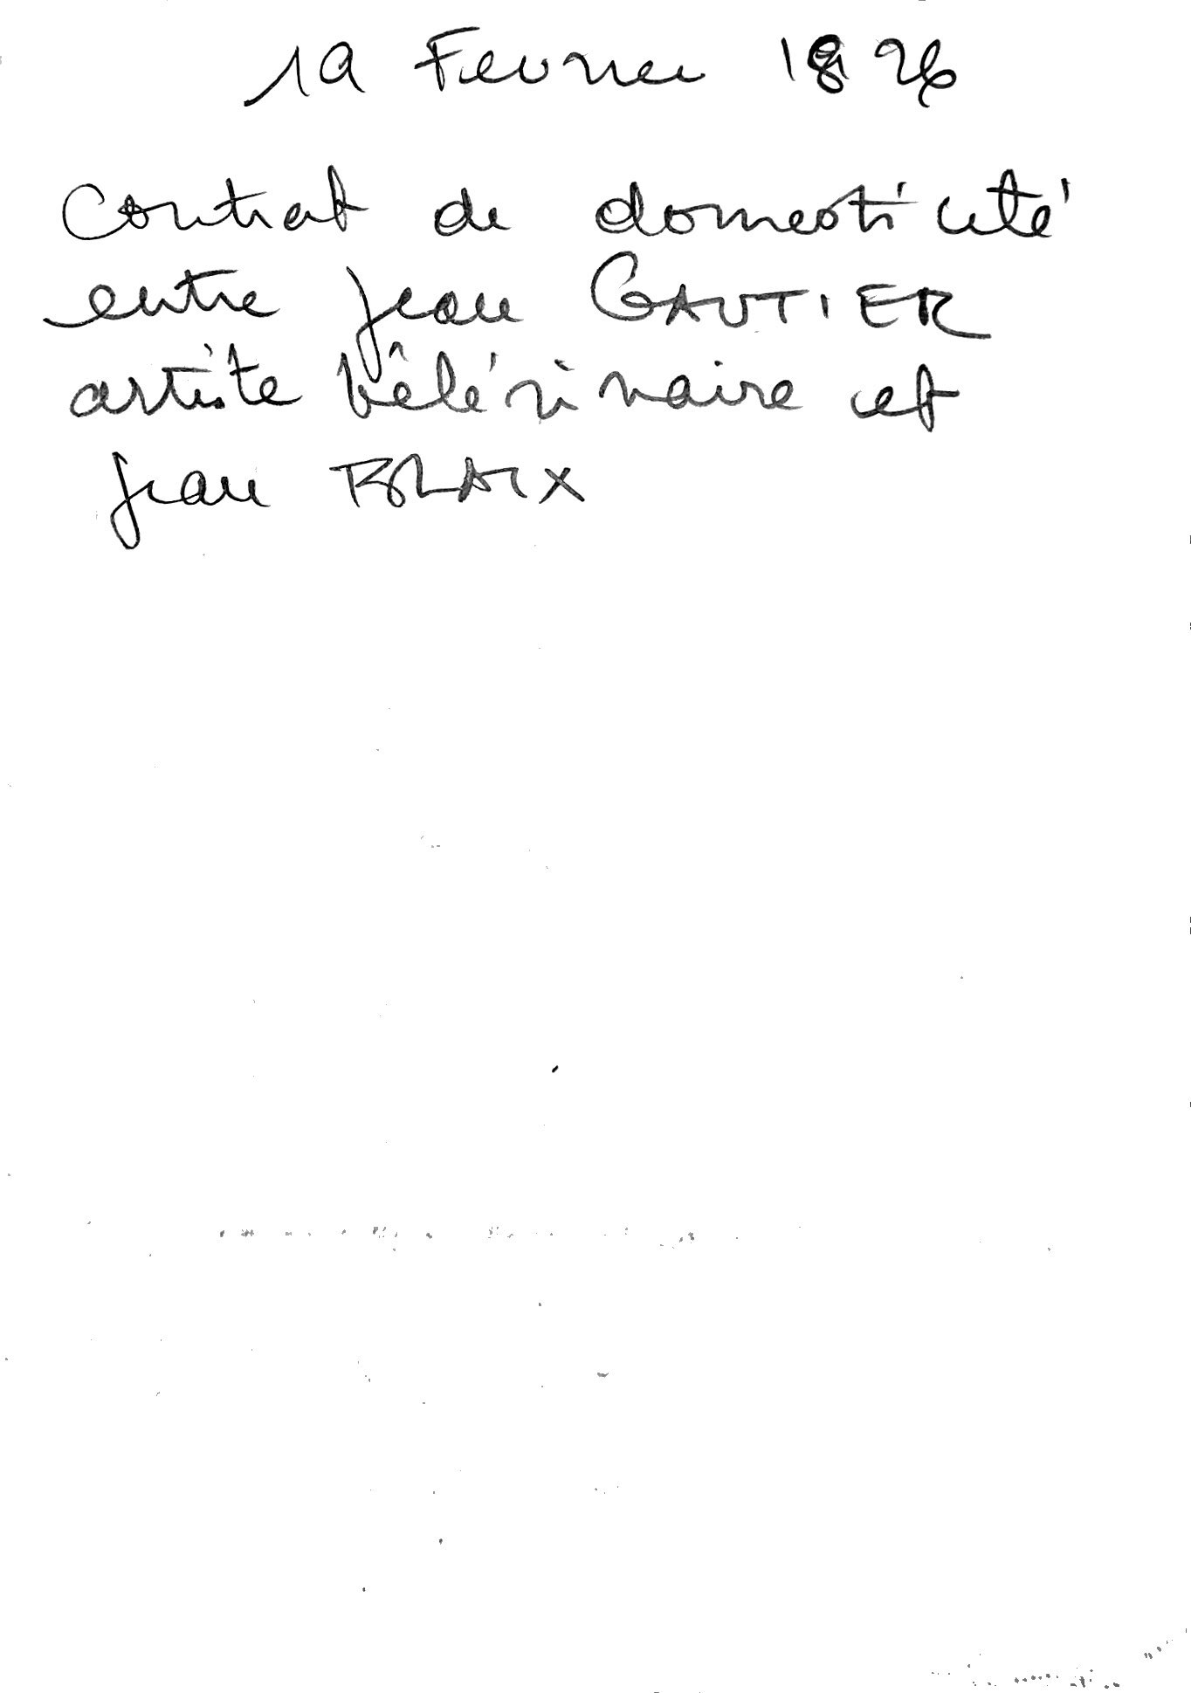 19 Fevrier 1826
Contrat de domesticité
entre Jean GAUTIER
artiste vétérinaire et
Jean BLAIX